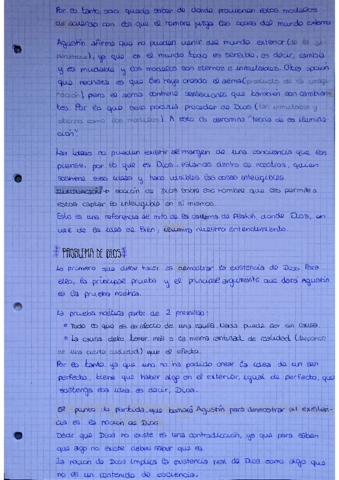 Por lo tanto, solo queda saber de dónde provienen estos modelos
de acuerdo con los que el hombre juzga las cosas del mundo externo.
Agustín afirma que no pueden venir del mundo exterior (de la ex
), ya que el mundo todo es sensible, es decir, cambia
y es mudable y los modelos son eternos e inmutables. Otra opción
que rechaza es que los haya creado el alma (producto de la imagi
nación), pero el alma contiene sensaciones que también son cambian
tes. Por lo que solo pueden proceder de Dios (tan inmutable y
eterno como los modelos). A esto se denomina "teoría de la ilumina
ción".
Las ideas no pueden existir al margen de una conciencia que las
piense, por lo que es Dios, estando dentro de nosotros, quien
sostiene esas ideas y hace visibles las cosas inteligibles.
ILUMINACIÓN → acción de Dios sobre los hombres que les permite a
estos captar lo inteligible en sí mismos.
Esto es una referencia al mito de la caverna de Platón, donde Dios, en
vez de la idea de Bien, ilumina nuestro entendimiento.
PROBLEMA DE DIOS
Lo primero que debe hacer es demostrar la existencia de Dios. Para
ello, la principal prueba y el principal argumento que dará Agustín
es la prueba noética.
La prueba noética parte de 2 premisas:
• Todo lo que es es efecto de una causa. Nada puede ser sin causa.
• La causa debe tener más o la misma cantidad de realidad (
de una cierta cualidad) que el efecto.
Por lo tanto, ya que uno no ha podido crear la idea de un ser
perfecto, tiene que haber algo en el exterior, igual de perfecto, que
sostenga esa idea, es decir, Dios.
El punto de partida que tomará Agustín para demostrar su existen-
cia es la noción de Dios.
Decir que Dios no existe es una contradicción, ya que para saber
que algo no existe debes saber qué es.
La noción de Dios implica la existencia real de Dios como algo que
no es un contenido de conciencia.